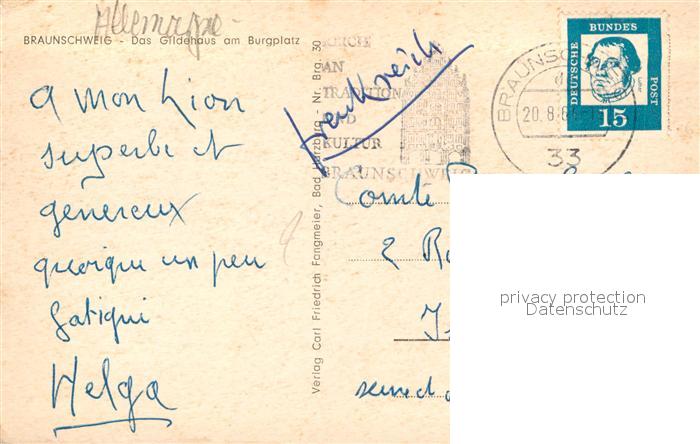 Allemagne
BRAUNSCHWEIG - Das Gildehaus am Burgplatz
A mon Lion
superbe et
genereux
quoique un peu
fatigué
Helga
Verlag Carl Friedrich Fangmeier, Bad Harzburg - Nr. Brg. 30
Frankreich
REICH
AN
TRADITION
UND
KULTUR
BRAUNSCHWEIG
BRAUNSC
20.8.6
33
DEUTSCHE
BUNDES
POST
15
Comte
2
privacy protection
Datenschutz